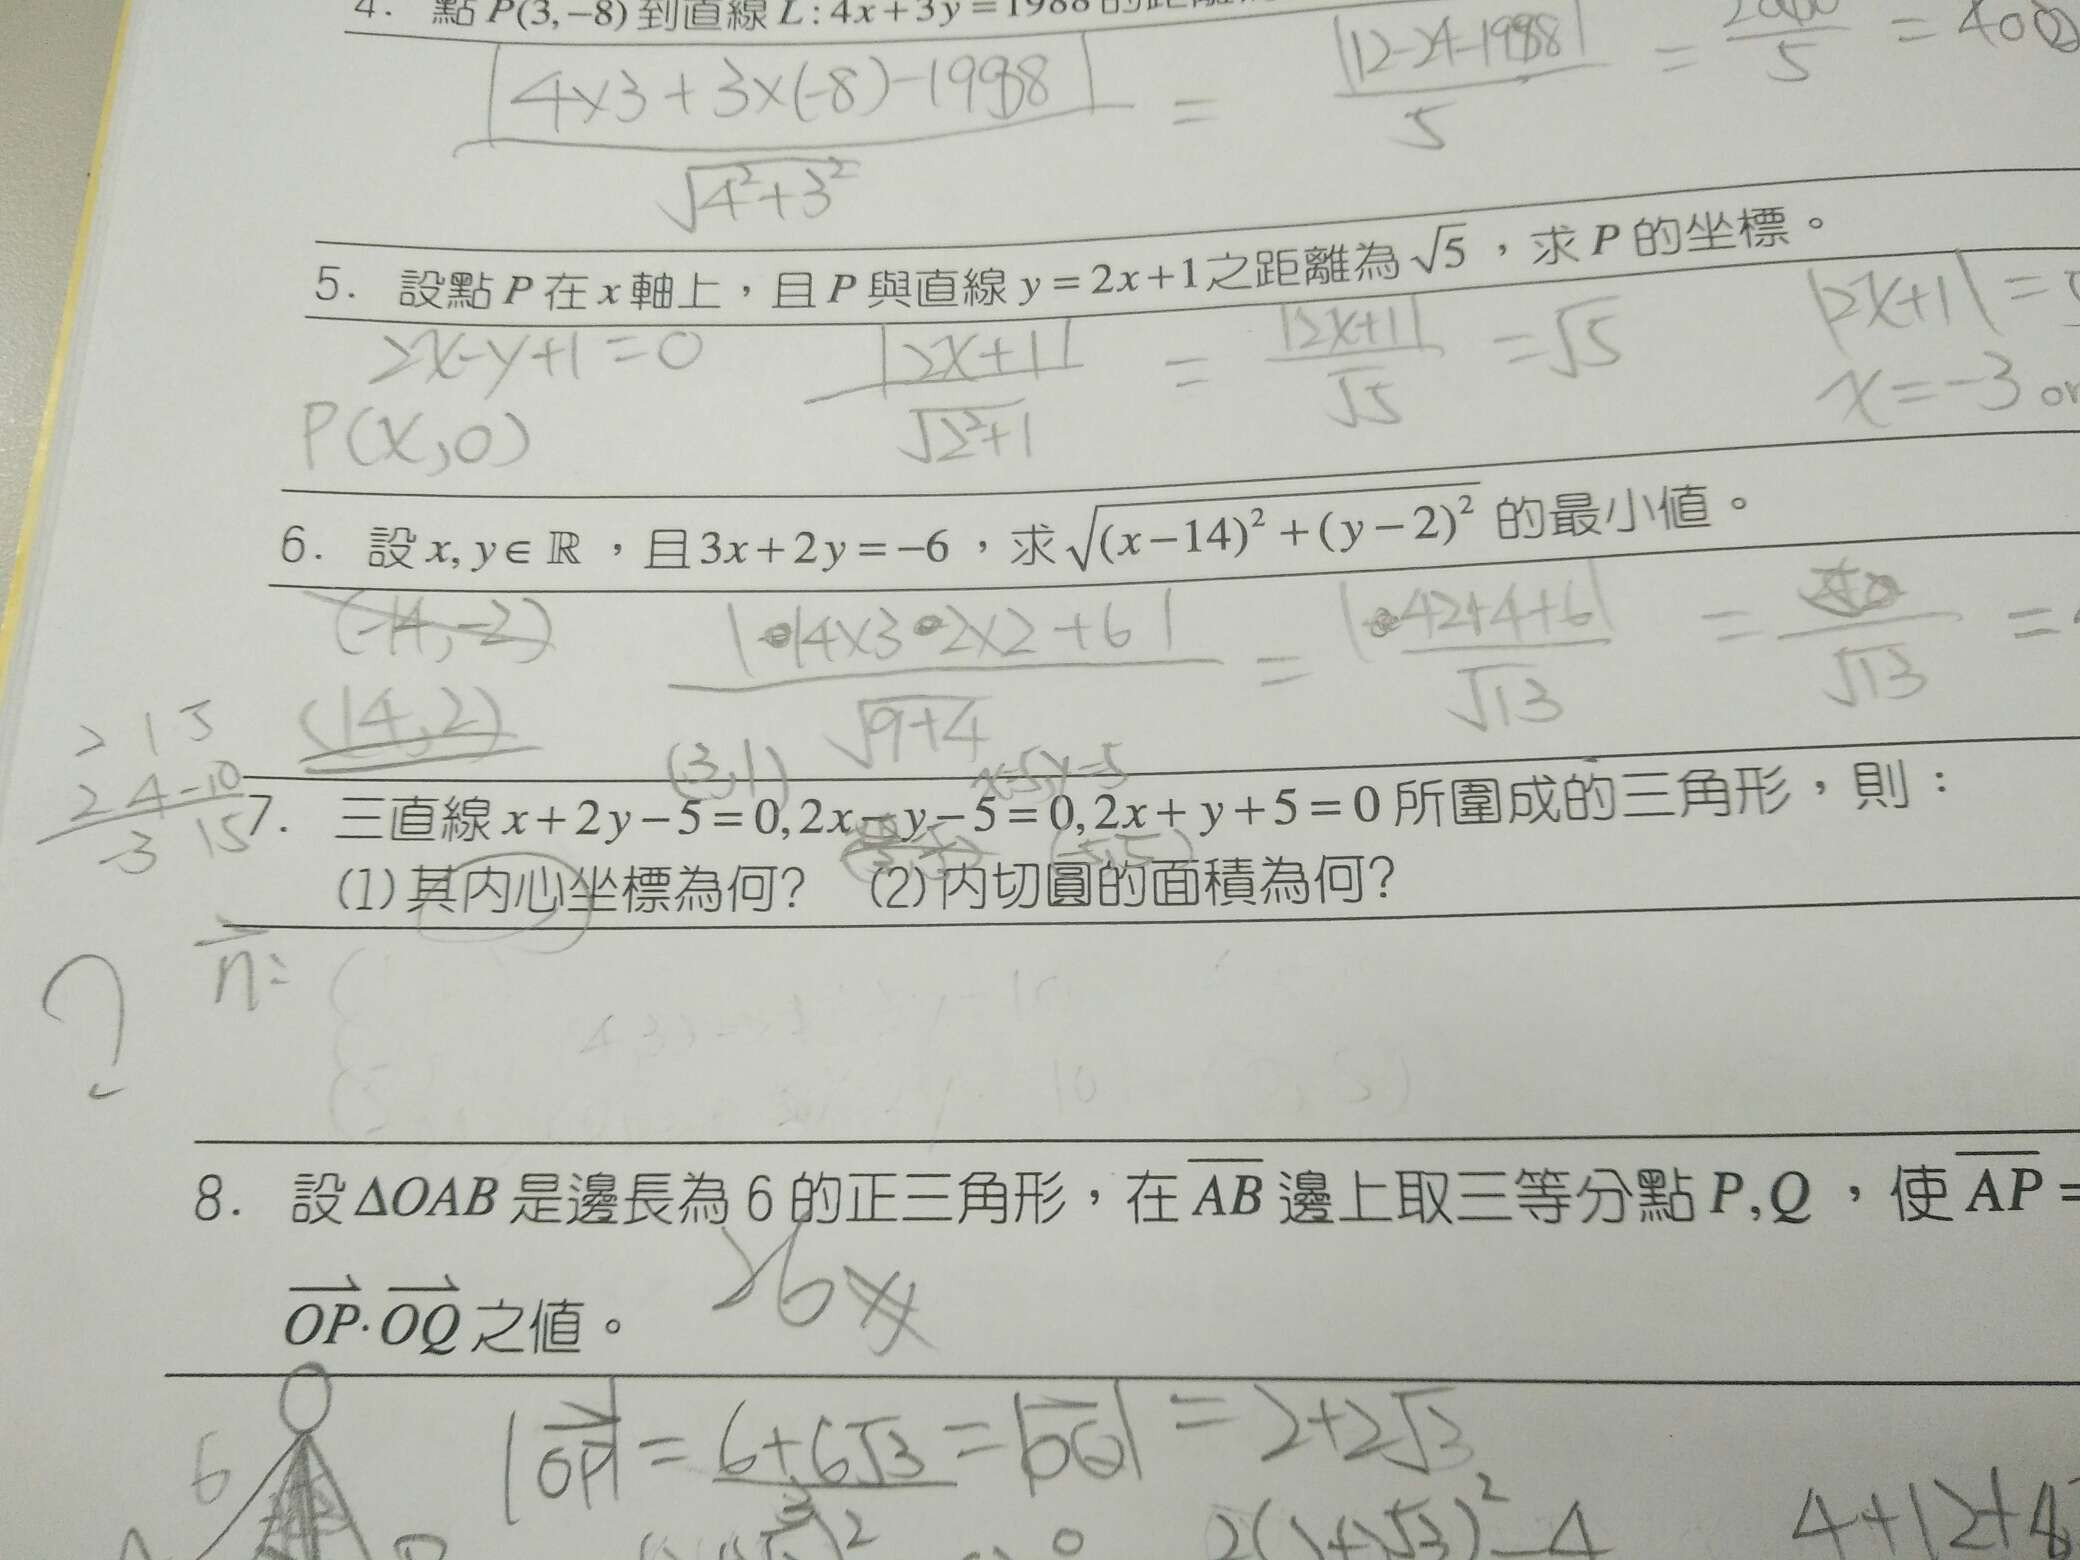 4. 點 P(3,−8) 到直線 L : 4x+3y=1988 的距離
|4x3+3x(-8)-1988| / √4²+3² = |12-24-1988| / 5 = 2000 / 5 = 400
5. 設點 P 在 x 軸上，且 P 與直線 y=2x+1之距離為 √5，求 P 的坐標。
2x-y+1=0 |2x+1| / √2²+1 = |2x+1| / √5 = √5 |2x+1| =
P(x,0) x=-3 or
6. 設 x, y∈ℝ，且3x+2y=−6，求 √(x−14)²+(y−2)² 的最小值。
(-14,-2) |14x3 2x2+6| / √9+4 = |42+4+6| / √13 = / √13 =
(14,2)
2 1 5
2 4 -10
-3 15
(3,1) x=5,y=-5
7. 三直線 x+2y−5=0,2x−y−5=0,2x+y+5=0 所圍成的三角形，則：
(-5,5)
(1)其內心坐標為何? (2)內切圓的面積為何?
n=
?
8. 設 ΔOAB 是邊長為 6 的正三角形，在 AB 邊上取三等分點 P,Q，使 AP =
OP·OQ 之值。 26
6 |OP| = 6+6√3 / 3 = |OQ| = 2+2√3
4+12+8